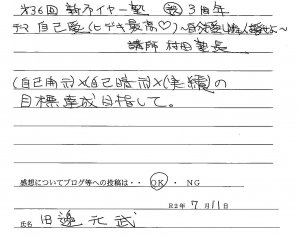 第36回 新ニイヤー塾 ㊗ 3周年
テーマ 自己愛(ヒデキ最高♡)〜自分を愛し他人を愛せよ〜
講師 村田塾長
(自己開示)×(自己暗示)×(実績)の
目標達成目指して。
感想についてブログ等への投稿は‥ OK ・ NG
R2年 7月11日
氏名 田邊元武